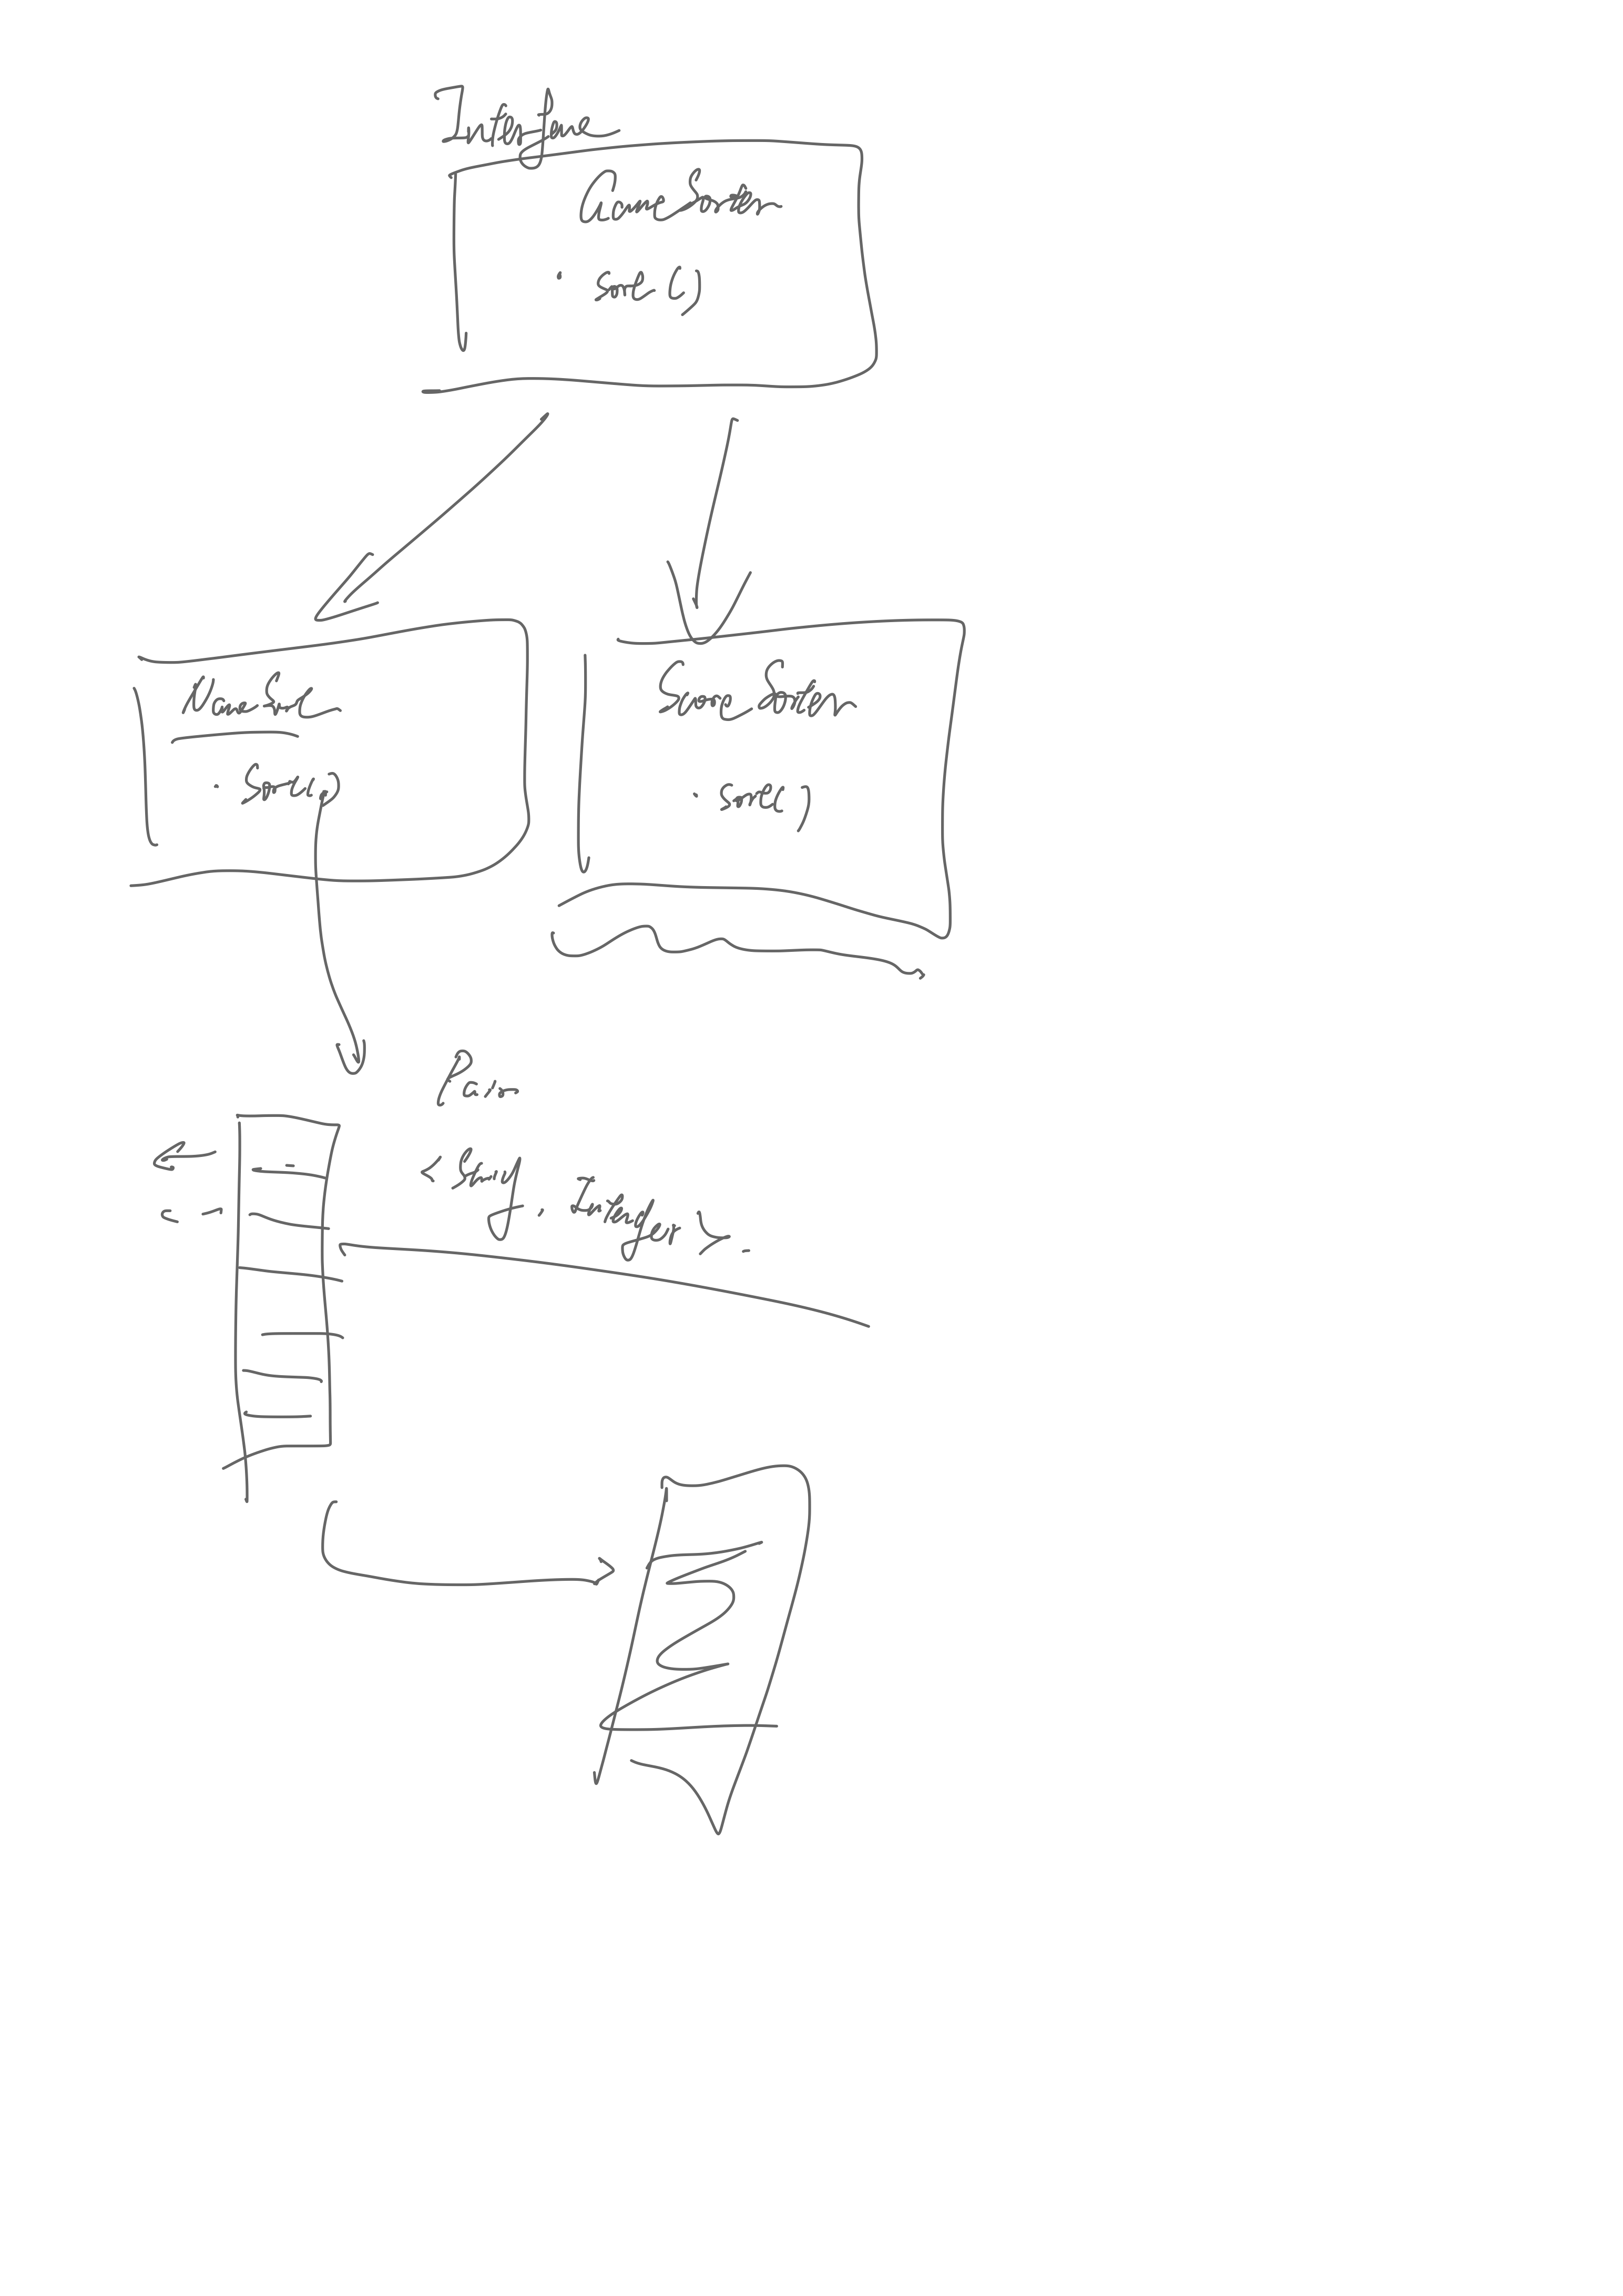 Interface
GameSorter
· sort()
NameSort
· Sort()
ScoreSorter
· sort()
Pair
<String, Integer>.